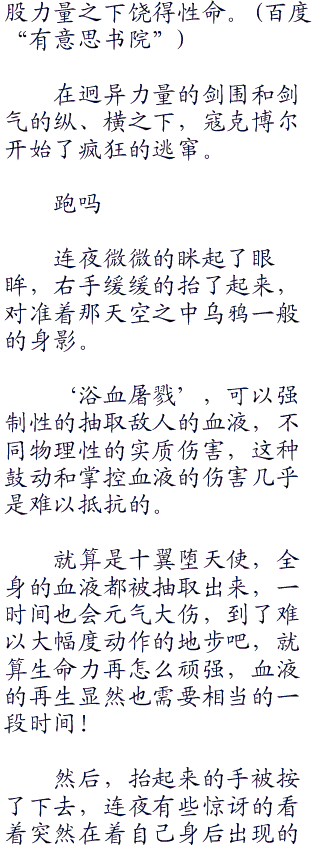 股力量之下饶得性命。(百度
“有意思书院”)
在迥异力量的剑围和剑
气的纵、横之下，寇克博尔
开始了疯狂的逃窜。
跑吗
连夜微微的眯起了眼
眸，右手缓缓的抬了起来，
对准着那天空之中乌鸦一般
的身影。
‘浴血屠戮’，可以强
制性的抽取敌人的血液，不
同物理性的实质伤害，这种
鼓动和掌控血液的伤害几乎
是难以抵抗的。
就算是十翼堕天使，全
身的血液都被抽取出来，一
时间也会元气大伤，到了难
以大幅度动作的地步吧，就
算生命力再怎么顽强，血液
的再生显然也需要相当的一
段时间！
然后，抬起来的手被按
了下去，连夜有些惊讶的看
着突然在着自己身后出现的